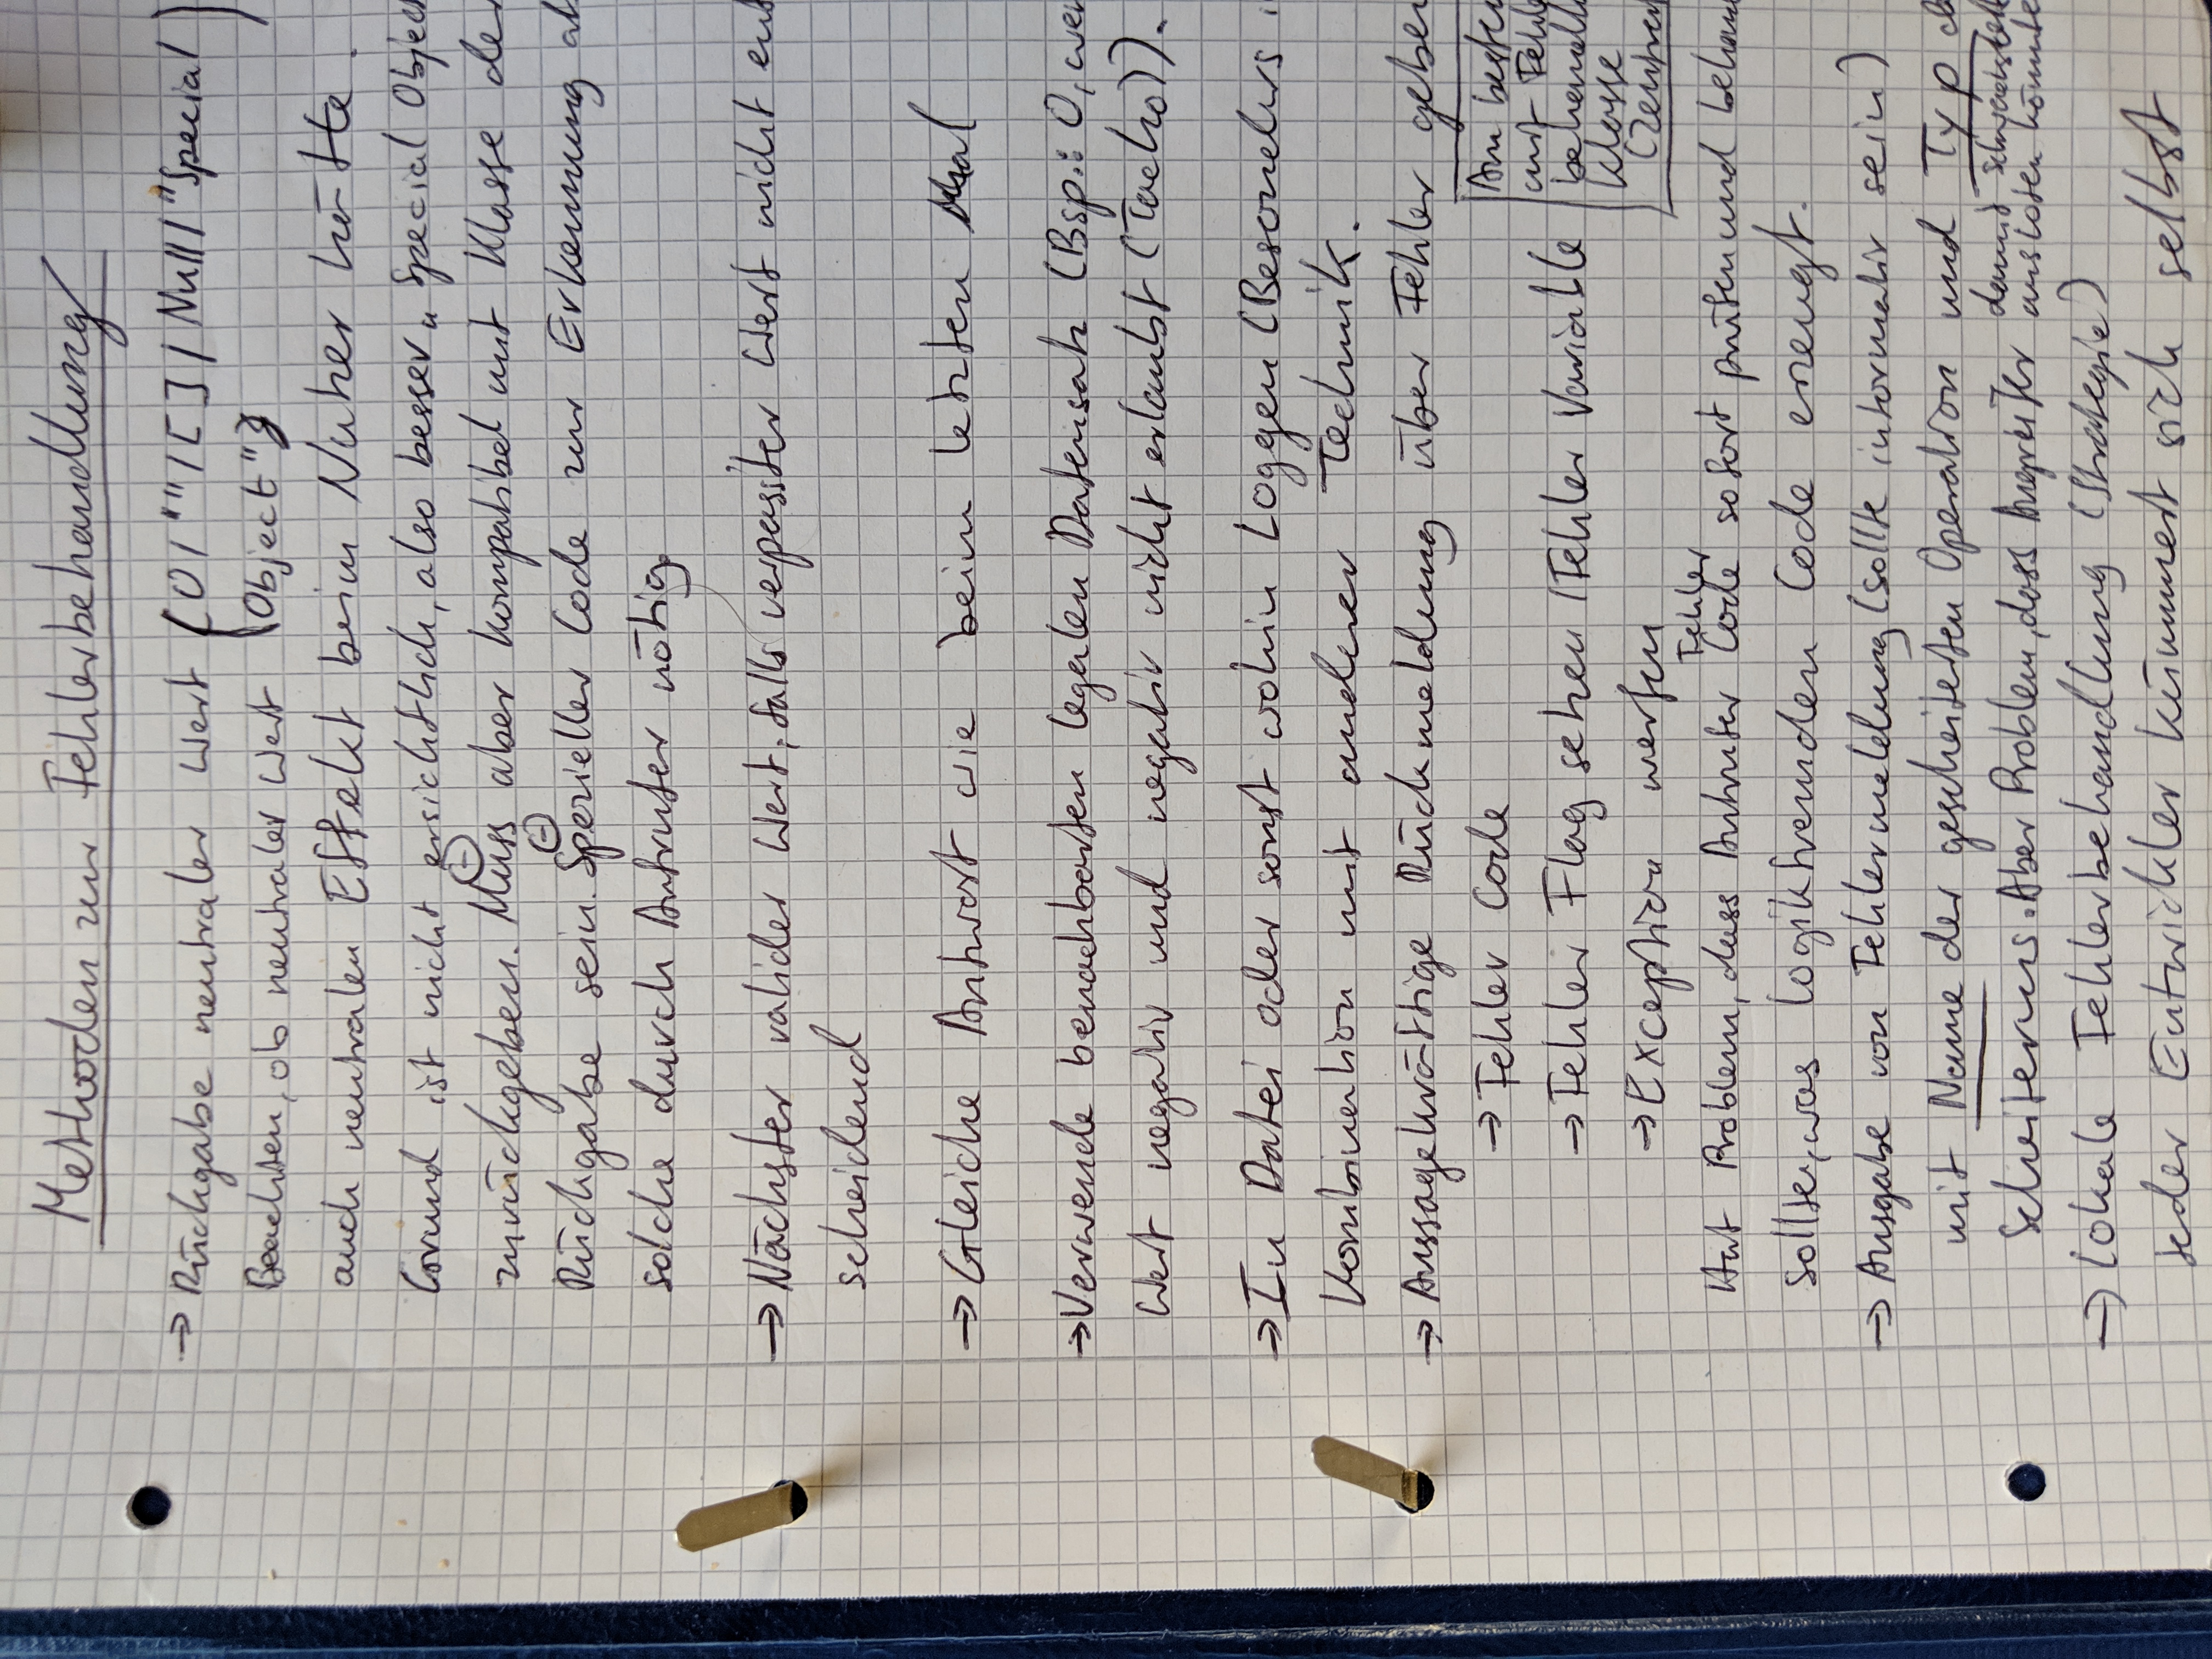 Methoden zur Fehlerbehandlung
→ Rückgabe neutraler Wert (0/""/[]/Null/"Special
Object")
Beachten, ob neutraler Wert
auch neutralen Effekt beim Nutzer hätte.
Grund ist nicht ersichtlich, also besser "Special Objec
zurückgeben. Muss aber kompatibel mit Klasse der
Rückgabe sein. Spezieller Code zur Erkennung
solche durch Aufrufer nötig
→ Nächster valider Wert, falls verpasster Wert nicht ent
scheidend
→ Gleiche Antwort wie beim letzten Mal
→ Verwende benachbarten legalen Datensatz (Bsp.: 0, wen
Wert negativ und negativ nicht erlaubt (Tacho)).
→ In Datei oder sonst wohin Loggen (Besonders i
Kombination mit anderer Technik.
→ Aussagekräftige Rückmeldung über Fehler geben
→ Fehler Code
→ Fehler Flag setzen (Fehler Variable
→ Exception werfen
Am besten
mit Fehle
behandl
klasse
(Zentral
Hat Problem, dass Aufrufer Fehler Code sofort prüfen und behan
sollte, was logikfremden Code erzeugt.
→ Ausgabe von Fehlermeldung (sollte informativ sein)
mit Name der gescheiterten Operation und Typ d
Scheiterns. Aber Problem, dass Angreifer damit
ausloten könnte
→ Lokale Fehlerbehandlung (Strategie)
Jeder Entwickler kümmert sich selbst